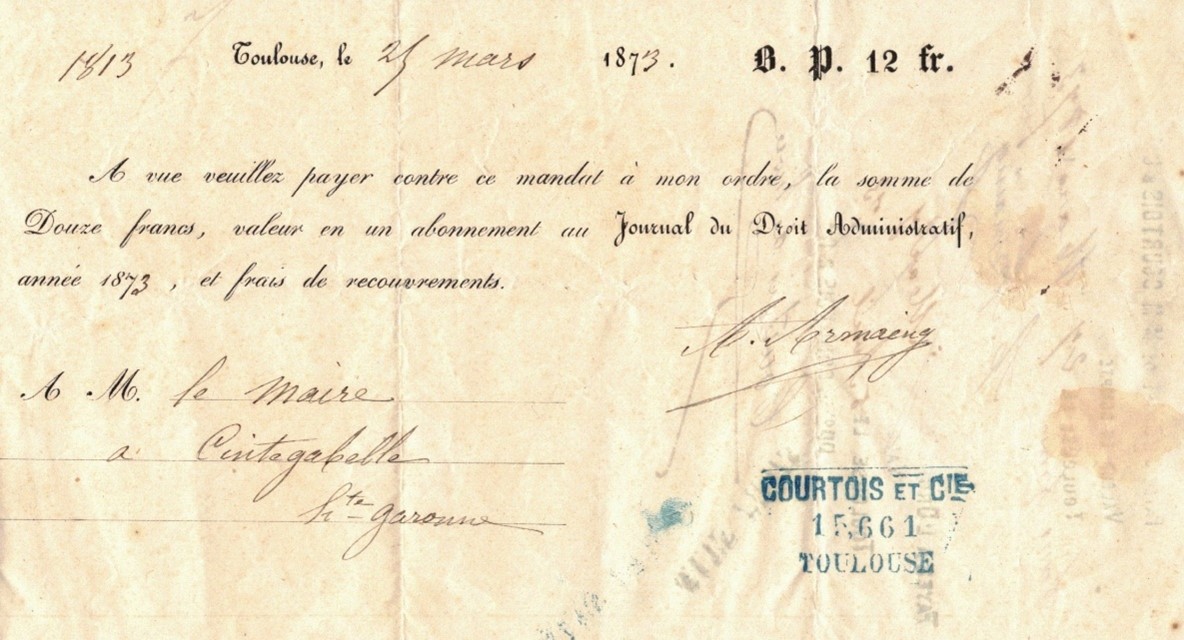 1813 Toulouse, le 25 mars 1873. B. P. 12 fr.
A vue veuillez payer contre ce mandat à mon ordre, la somme de
Douze francs, valeur en un abonnement au Journal du Droit Administratif,
année 1873, et frais de recouvrements.
A. Armaing
A M. le Maire
a Cintegabelle
hte Garonne
COURTOIS ET CIE
15,661
TOULOUSE